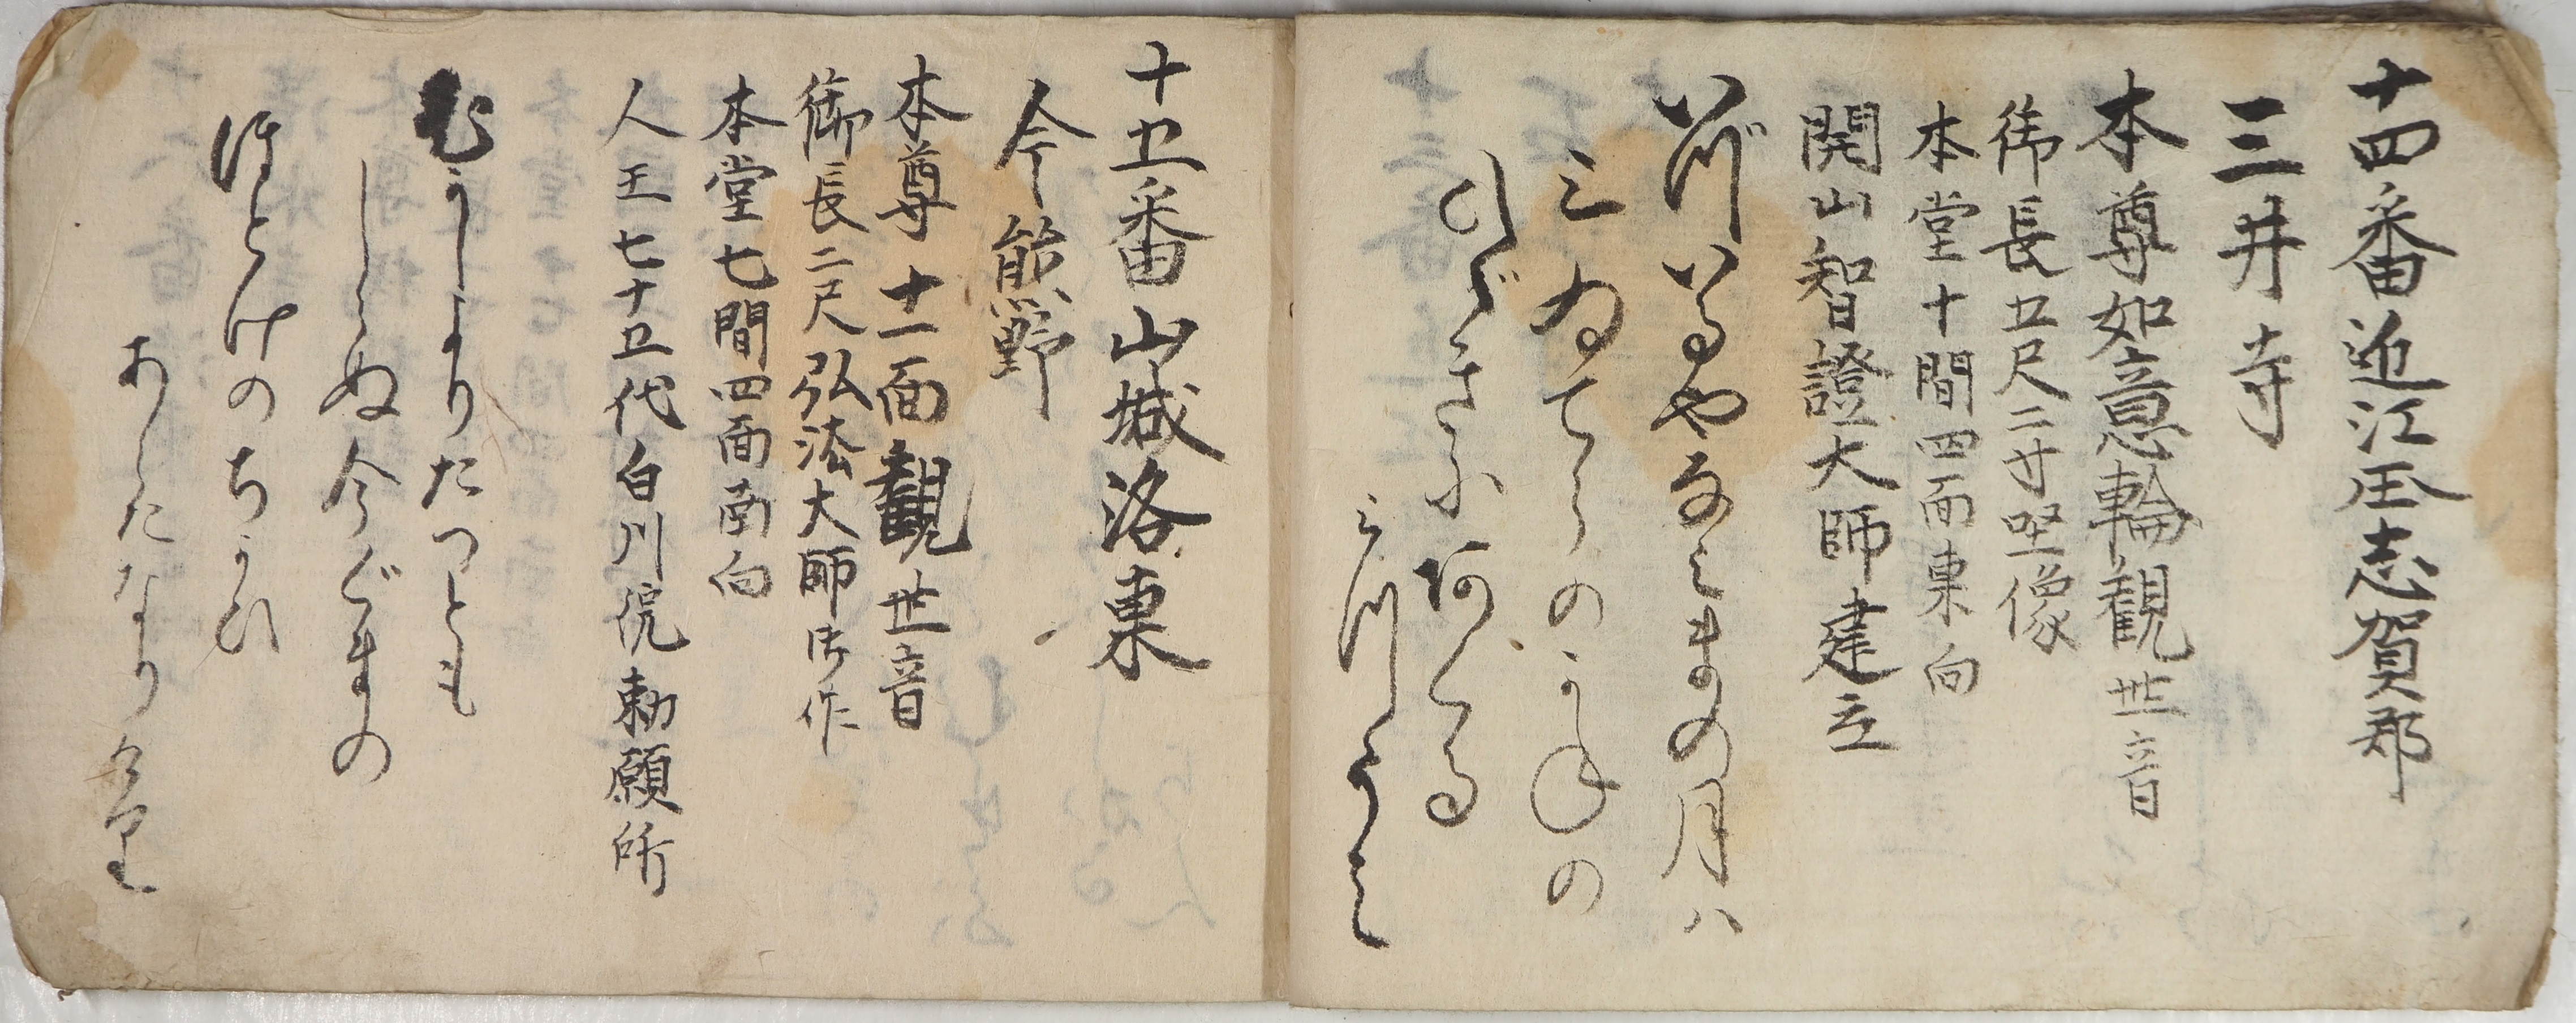 十四番近江国志賀郡
三井寺
本尊如意輪観世音
御長五尺二寸坐像
本堂十間四面東向
開山智證大師建立
いづいるやなみまの月八
三ゐてらのかねの
ひゞきに阿くる
みづうみ
十五番山城洛東
今熊野
本尊十一面観世音
御長二尺弘法大師御作
本堂七間四面南向
人王七十五代白川院勅願所
むかしよりたつとも
しらぬ今ぐまの
ほとけのちかひ
あらたなりけり